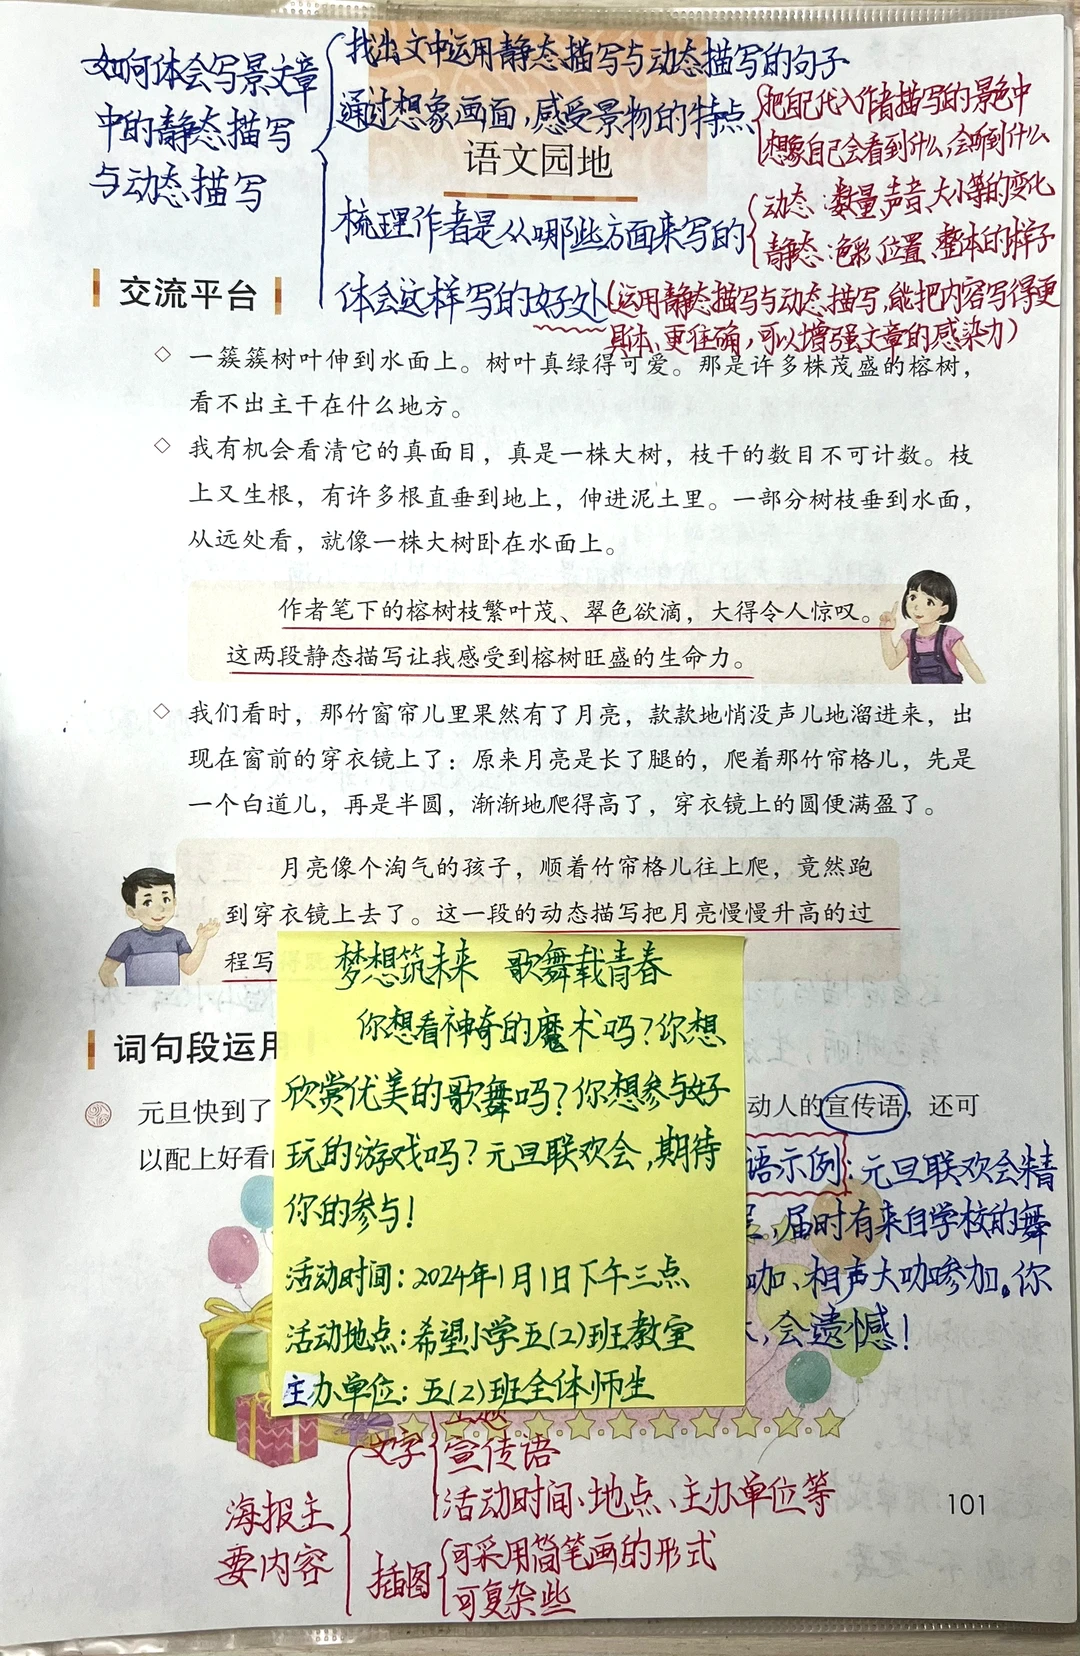 如何体会写景文章
中的静态描写
与动态描写
找出文中运用静态描写与动态描写的句子
通过想象画面,感受景物的特点
把自己代入作者描写的景色中
想象自己会看到什么,会听到什么
语文园地
梳理作者是从哪些方面来写的
动态:数量、声音、大小等的变化
静态:色彩、位置、整体的样子
体会这样写的好处(运用静态描写与动态描写,能把内容写得更
具体、更准确,可以增强文章的感染力)
交流平台
一簇簇树叶伸到水面上。树叶真绿得可爱。那是许多株茂盛的榕树,
看不出主干在什么地方。
我有机会看清它的真面目,真是一株大树,枝干的数目不可计数。枝
上又生根,有许多根直垂到地上,伸进泥土里。一部分树枝垂到水面,
从远处看,就像一株大树卧在水面上。
作者笔下的榕树枝繁叶茂、翠色欲滴,大得令人惊叹。
这两段静态描写让我感受到榕树旺盛的生命力。
我们看时,那竹窗帘儿里果然有了月亮,款款地悄没声儿地溜进来,出
现在窗前的穿衣镜上了:原来月亮是长了腿的,爬着那竹帘格儿,先是
一个白道儿,再是半圆,渐渐地爬得高了,穿衣镜上的圆便满盈了。
月亮像个淘气的孩子,顺着竹帘格儿往上爬,竟然跑
到穿衣镜上去了。这一段的动态描写把月亮慢慢升高的过
程写
梦想筑未来 歌舞载青春
你想看神奇的魔术吗?你想
欣赏优美的歌舞吗?你想参与好
玩的游戏吗?元旦联欢会,期待
你的参与!
活动时间:2024年1月1日下午三点
活动地点:希望小学五(2)班教室
主办单位:五(2)班全体师生
词句段运用
元旦快到了
动人的宣传语,还可
以配上好看
语示例:元旦联欢会精
,届时有来自学校的舞
咖、相声大咖参加。你
,会遗憾!
海报主
要内容
文字
宣传语
活动时间、地点、主办单位等
插图
可采用简笔画的形式
可复杂些
101